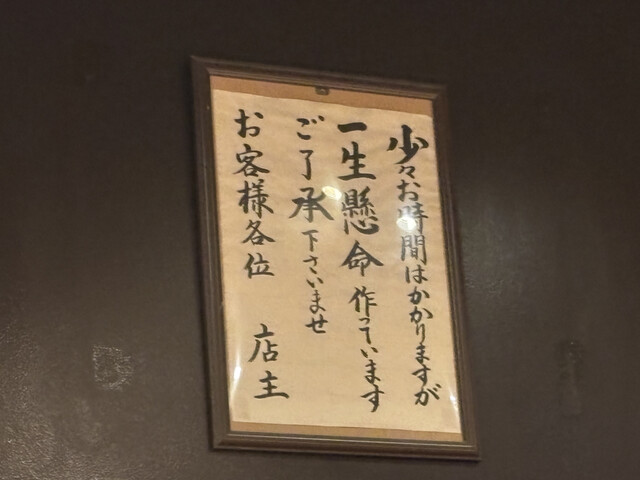 少々お時間はかかりますが
一生懸命作っています
ご了承下さいませ
お客様各位
店主